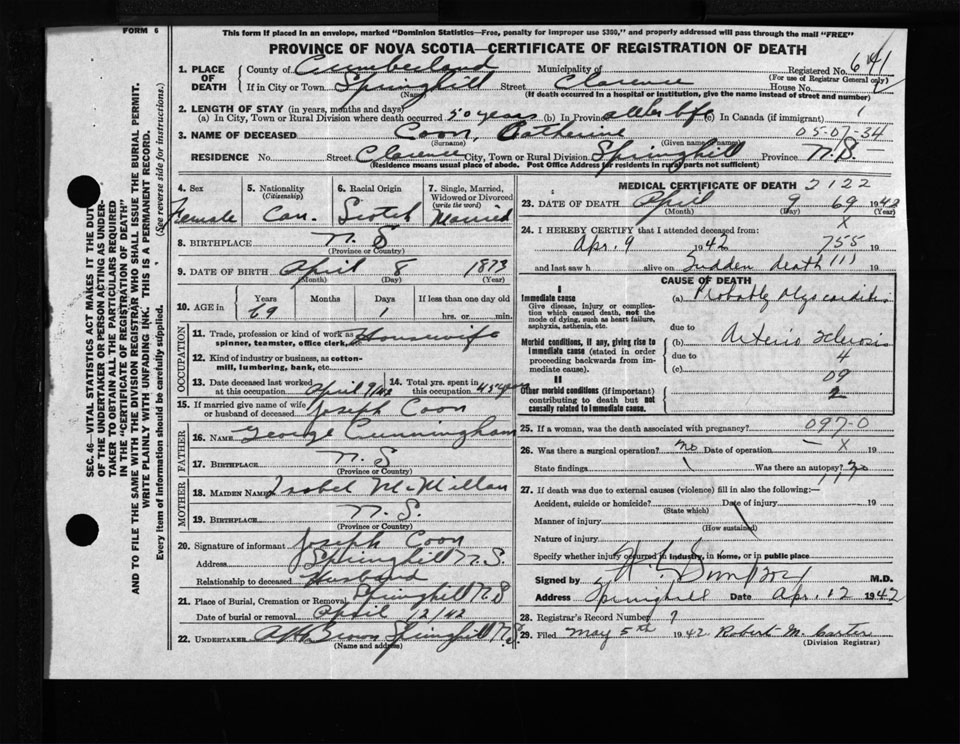 FORM 6
This form if placed in an envelope, marked "Dominion Statistics—Free, penalty for improper use $300," and properly addressed will pass through the mail "FREE"
PROVINCE OF NOVA SCOTIA—CERTIFICATE OF REGISTRATION OF DEATH
1. PLACE OF DEATH
County of Cumberland Municipality of Registered No. 641
(For use of Registrar General only)
If in City or Town Springhill Street Clarence House No.
(Name) (If death occurred in a hospital or institution, give the name instead of street and number)
2. LENGTH OF STAY (in years, months and days)
(a) In City, Town or Rural Division where death occurred 50 years (b) In Province all her life (c) In Canada (if immigrant)
3. NAME OF DECEASED Coon, Catherine 05-07-34
(Surname) (Given name or names)
RESIDENCE No. Street Clarence City, Town or Rural Division Springhill Province N.S.
(Residence means usual place of abode. Post Office Address for Residents in rural parts not sufficient)
4. Sex Female
5. Nationality (Citizenship) Can.
6. Racial Origin Scotch
7. Single, Married, Widowed or Divorced (write the word) Married
8. BIRTHPLACE N. S
(Province or Country)
9. DATE OF BIRTH April 8 1873
(Month) (Day) (Year)
10. AGE in Years Months Days If less than one day
69 1 hrs. or min.
OCCUPATION
11. Trade, profession or kind of work as spinner, teamster, office clerk, Housewife
12. Kind of industry or business, as cotton-mill, lumbering, bank, etc.
13. Date deceased last worked at this occupation April 9/42
14. Total yrs. spent in this occupation 45 years
15. If married give name of wife or husband of deceased Joseph Coon
FATHER
16. NAME George Cunningham
17. BIRTHPLACE N. S
(Province or Country)
MOTHER
18. MAIDEN NAME Isabel McMillan
19. BIRTHPLACE N. S.
(Province or Country)
20. Signature of informant Joseph Coon
Address Springhill N.S.
Relationship to deceased Husband
21. Place of Burial, Cremation or Removal Springhill N.S
Date of burial or removal April 12/42
22. UNDERTAKER Brown Springhill N.S.
(Name and address)
MEDICAL CERTIFICATE OF DEATH 2122
23. DATE OF DEATH April 9 69 1942
(Month) (Day) (Year)
X
24. I HEREBY CERTIFY that I attended deceased from:
Apr. 9 1942 755 19
and last saw h alive on Sudden death 111 19
CAUSE OF DEATH
I
Immediate cause
Give disease, injury or complication which caused death, not the mode of dying, such as heart failure, asphyxia, asthenia, etc.
(a) Probably Myocarditis
due to
Morbid conditions, if any, giving rise to immediate cause (stated in order proceeding backwards from immediate cause).
(b) Arterio sclerosis
due to 4
(c)
09
II
Other morbid conditions (if important) contributing to death but not causally related to immediate cause.
2
25. If a woman, was the death associated with pregnancy? 097-0
– X
26. Was there a surgical operation? no Date of operation 19
State findings Was there an autopsy? no
111
27. If death was due to external causes (violence) fill in also the following:—
Accident, suicide or homicide? Date of injury 19
(State which)
Manner of injury
(How sustained)
Nature of injury
Specify whether injury occurred in industry, in home, or in public place
Signed by M.D.
Address Springhill Date Apr. 12 1942
28. Registrar's Record Number 7
29. Filed May 5th 1942 Robert M. Carter
(Division Registrar)
SEC. 46—VITAL STATISTICS ACT MAKES IT THE DUTY
OF THE UNDERTAKER OR PERSON ACTING AS UNDERTAKER
TO OBTAIN ALL THE PARTICULARS REQUIRED
IN THE "CERTIFICATE OF REGISTRATION OF DEATH"
AND TO FILE THE SAME WITH THE DIVISION REGISTRAR WHO SHALL ISSUE THE BURIAL PERMIT.
WRITE PLAINLY WITH UNFADING INK. THIS IS A PERMANENT RECORD.
Every item of information should be carefully supplied. (See reverse side for instructions.)